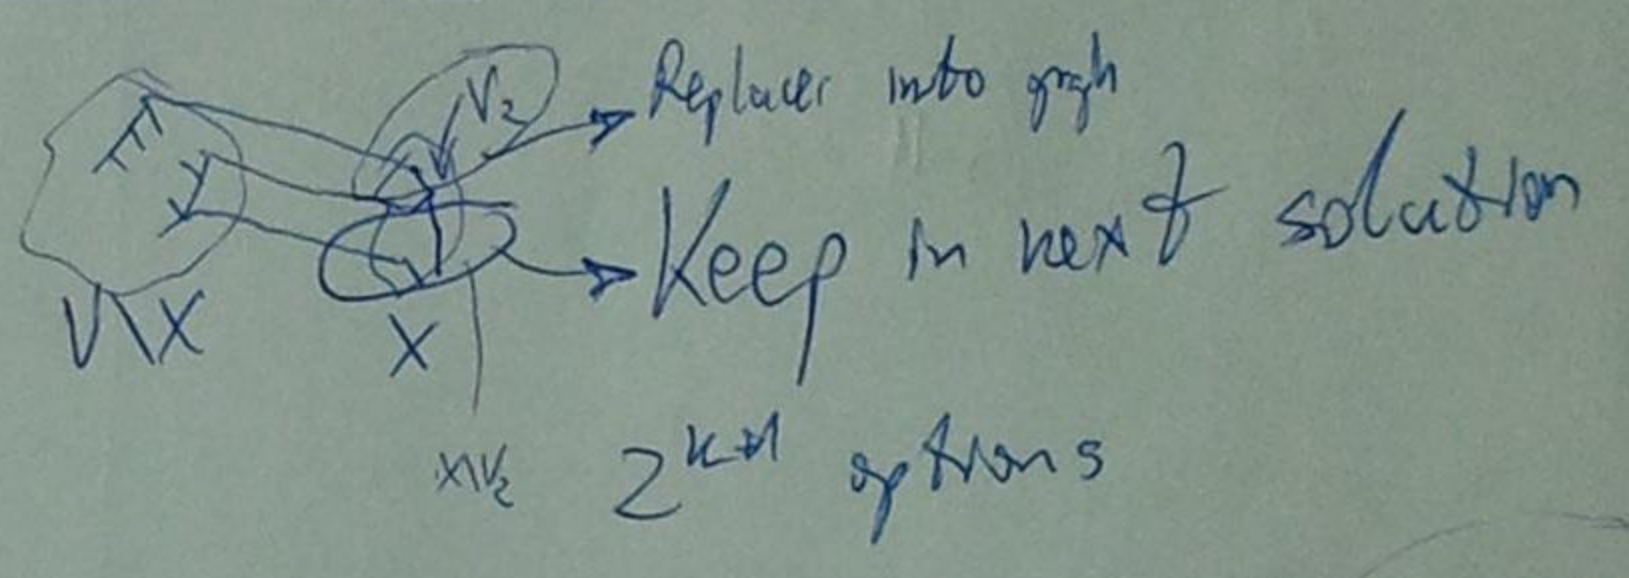 V₂
Replacer into graph
Keep in next solution
V\X
X
X\V₂
2^{k+1} options